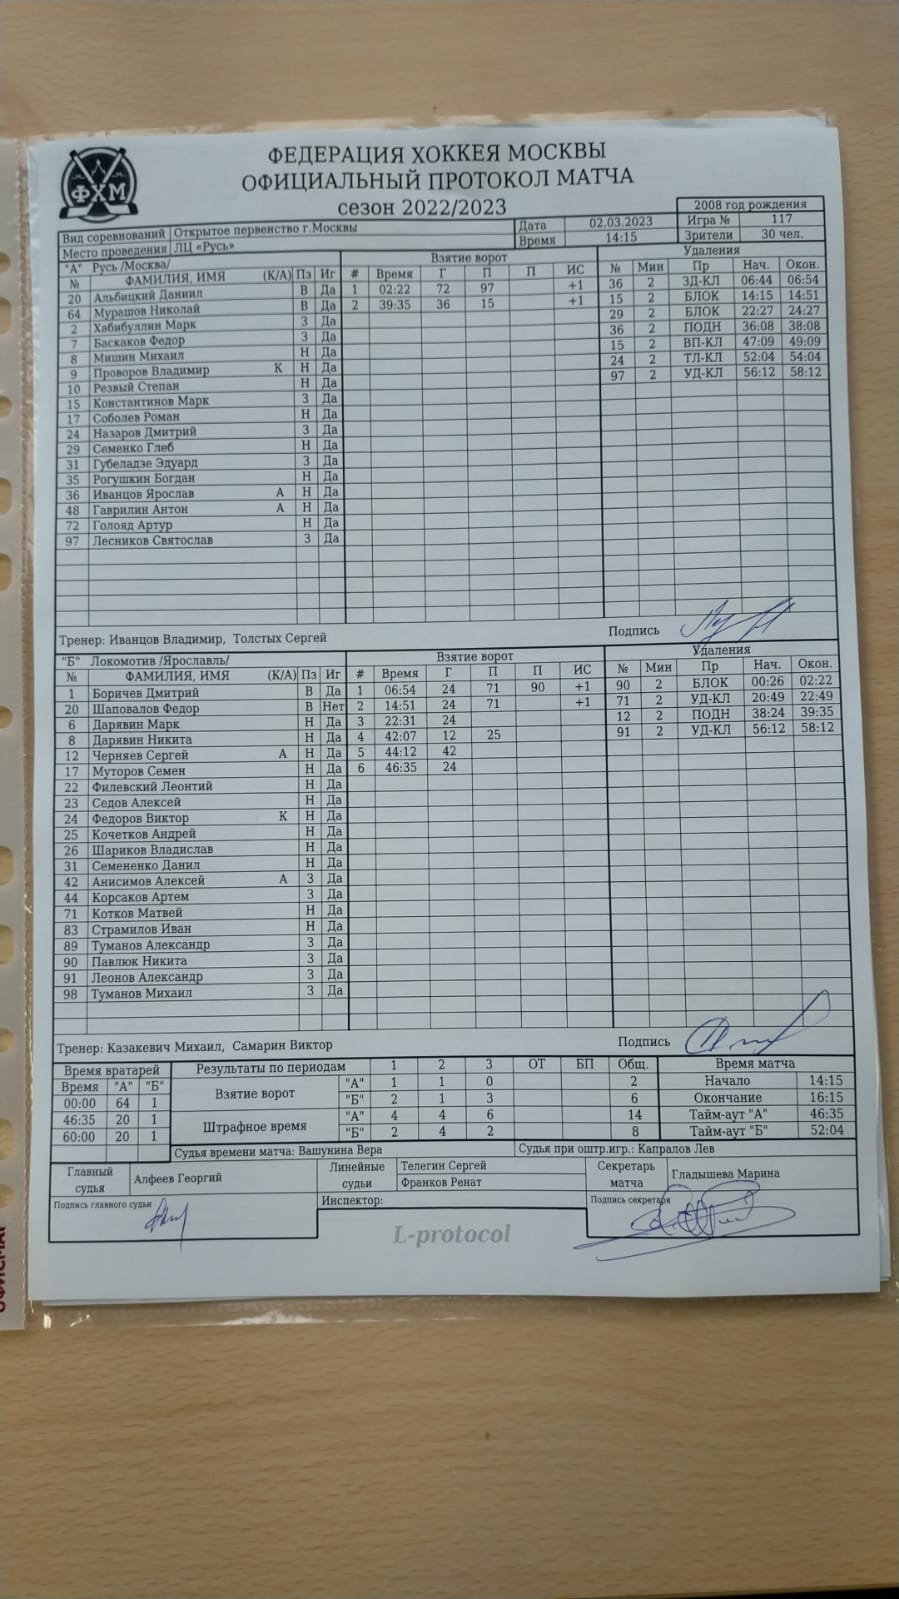 ФЕДЕРАЦИЯ ХОККЕЯ МОСКВЫ
ОФИЦИАЛЬНЫЙ ПРОТОКОЛ МАТЧА
сезон 2022/2023
ФХМ
2008 год рождения
Вид соревнований Открытое первенство г.Москвы Дата 02.03.2023 Игра № 117
Место проведения ЛЦ «Русь» Время 14:15 Зрители 30 чел.
"А" Русь /Москва/ Взятие ворот Удаления
№ ФАМИЛИЯ, ИМЯ (К/А) Пз Иг # Время Г П П ИС № Мин Пр Нач. Окон.
20 Альбицкий Даниил В Да 1 02:22 72 97 +1 36 2 ЗД-КЛ 06:44 06:54
64 Мурашов Николай В Да 2 39:35 36 15 +1 15 2 БЛОК 14:15 14:51
2 Хабибуллин Марк З Да 29 2 БЛОК 22:27 24:27
7 Баскаков Федор З Да 36 2 ПОДН 36:08 38:08
8 Мишин Михаил Н Да 15 2 ВП-КЛ 47:09 49:09
9 Проворов Владимир К Н Да 24 2 ТЛ-КЛ 52:04 54:04
10 Резвый Степан Н Да 97 2 УД-КЛ 56:12 58:12
15 Константинов Марк З Да
17 Соболев Роман Н Да
24 Назаров Дмитрий З Да
29 Семенко Глеб Н Да
31 Губеладзе Эдуард З Да
35 Рогушкин Богдан Н Да
36 Иванцов Ярослав А Н Да
48 Гаврилин Антон А Н Да
72 Голояд Артур Н Да
97 Лесников Святослав З Да
Тренер: Иванцов Владимир, Толстых Сергей Подпись
"Б" Локомотив /Ярославль/ Взятие ворот Удаления
№ ФАМИЛИЯ, ИМЯ (К/А) Пз Иг # Время Г П П ИС № Мин Пр Нач. Окон.
1 Боричев Дмитрий В Да 1 06:54 24 71 90 +1 90 2 БЛОК 00:26 02:22
20 Шаповалов Федор В Нет 2 14:51 24 71 +1 71 2 УД-КЛ 20:49 22:49
6 Дарявин Марк Н Да 3 22:31 24 12 2 ПОДН 38:24 39:35
8 Дарявин Никита Н Да 4 42:07 12 25 91 2 УД-КЛ 56:12 58:12
12 Черняев Сергей А Н Да 5 44:12 42
17 Муторов Семен Н Да 6 46:35 24
22 Филевский Леонтий Н Да
23 Седов Алексей Н Да
24 Федоров Виктор К Н Да
25 Кочетков Андрей Н Да
26 Шариков Владислав Н Да
31 Семененко Данил Н Да
42 Анисимов Алексей А З Да
44 Корсаков Артем З Да
71 Котков Матвей Н Да
83 Страмилов Иван Н Да
89 Туманов Александр З Да
90 Павлюк Никита З Да
91 Леонов Александр З Да
98 Туманов Михаил З Да
Тренер: Казакевич Михаил, Самарин Виктор Подпись
Время вратарей Результаты по периодам 1 2 3 ОТ БП Общ. Время матча
Время "А" "Б" Взятие ворот "А" 1 1 0 2 Начало 14:15
00:00 64 1 "Б" 2 1 3 6 Окончание 16:15
46:35 20 1 Штрафное время "А" 4 4 6 14 Тайм-аут "А" 46:35
60:00 20 1 "Б" 2 4 2 8 Тайм-аут "Б" 52:04
Судья времени матча: Вашунина Вера Судья при оштр.игр.: Капралов Лев
Главный судья Алфеев Георгий Линейные судьи Телегин Сергей Секретарь матча Гладышева Марина
Франков Ренат
Подпись главного судьи Инспектор: Подпись секретаря
L-protocol